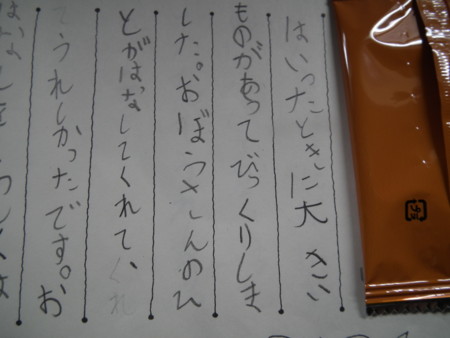 はいったときに大きい
ものがあってびっくりしま
した。おぼうさんのひ
とがはなしてくれて、くれ
てうれしかったです。お